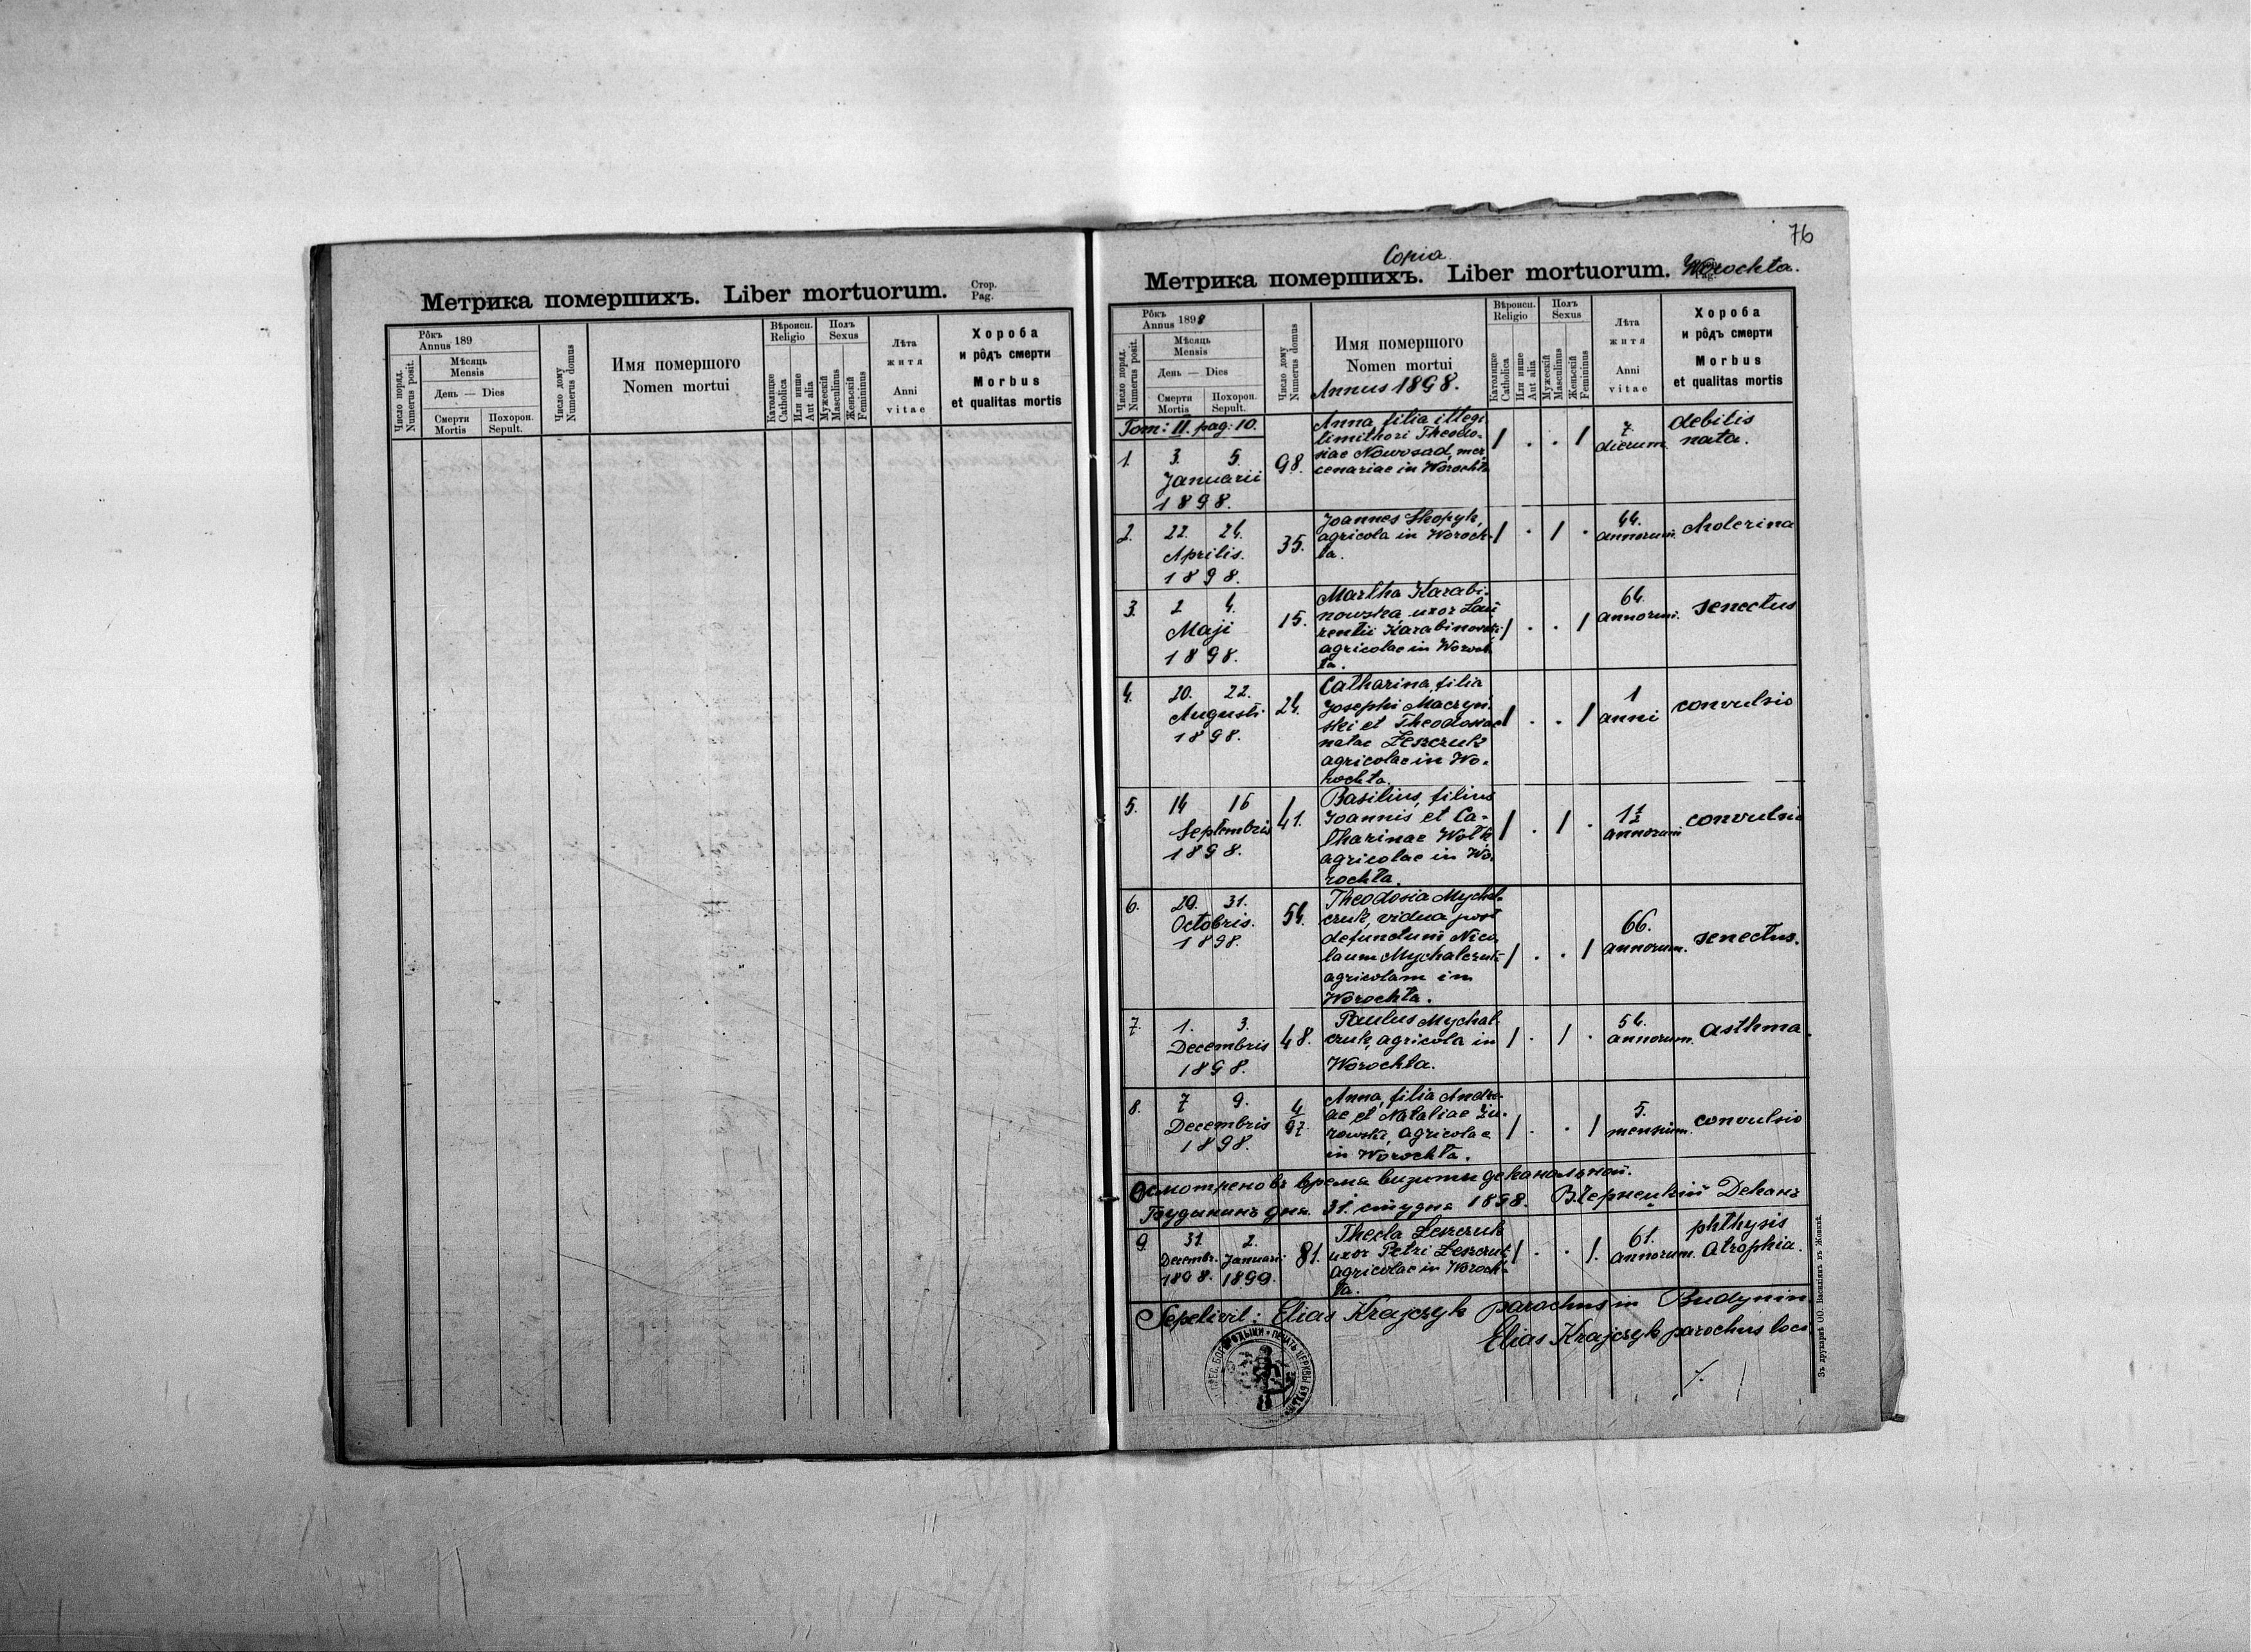 Метрика помершихъ. Liber mortuorum. Стор. Pag.
Рôкъ
Annus 189
Число поряд.
Numerus posit.
Мѣсяць
Mensis
День — Dies
Смерти
Mortis
Похорон.
Sepult.
Число дому
Numerus domus
Имя помершого
Nomen mortui
Вѣроисп.
Religio
Католицке
Catholica
Или инше
Aut alia
Полъ
Sexus
Мужескій
Masculinus
Женьскій
Femininus
Лѣта
житя
Anni
vitae
Хороба
и рôдъ смерти
Morbus
et qualitas mortis
76
Copia
Метрика помершихъ. Liber mortuorum. Worochta.
Рôкъ
Annus 1898
Число поряд.
Numerus posit.
Мѣсяць
Mensis
День — Dies
Смерти
Mortis
Похорон.
Sepult.
Число дому
Numerus domus
Имя помершого
Nomen mortui
Annus 1898.
Вѣроисп.
Religio
Католицке
Catholica
Или инше
Aut alia
Полъ
Sexus
Мужескій
Masculinus
Женьскій
Femininus
Лѣта
житя
Anni
vitae
Хороба
и рôдъ смерти
Morbus
et qualitas mortis
Tom: II. pag: 10.
1. 3. 5.
Januarii
1898.
98.
Anna filia illegi
limithori Theodo-
siae Nowosad, mer
cenariae in Worochta
/ . . /
7.
dierum
debilis
nata.
2. 22. 24.
Aprilis.
1898.
35.
Joannes Skopyk,
agricola in Woroch-
ta.
/ . / .
44.
annorum.
cholerina
3. 2 4.
Maji
1898.
15.
Martha Karabi-
nowska uxor Lau
rentii Karabinowski
agricolae in Woroch
ta.
/ . . /
64.
annorum.
senectus
4. 20. 22.
Augusti
1898.
24.
Catharina, filia
Josephi Maczyń-
ski et Theodosiae
natae Leszczuk
agricolae in Wo-
rochta.
/ . . /
1
anni
convulsio
5. 14 16
Septembris
1898.
41.
Basilius, filius
Joannis et Ca-
tharinae Wolk
agricolae in Wo
rochta.
/ . / .
1½
annorum
convulsio
6. 29. 31.
Octobris.
1898.
54.
Theodosia Mychal-
czuk, vidua post
defunctum Nico
laum Mychalczuk
agricolam in
Worochta.
/ . . /
66.
annorum.
senectus.
7. 1. 3.
Decembris
1898.
48.
Paulus Mychal
czuk, agricola in
Worochta.
/ . / .
54.
annorum.
asthma.
8. 7 9.
Decembris
1898.
4/97
Anna, filia Andre-
ae et Nataliae Żu-
rowski, agricolae
in Worochta.
/ . . /
5.
mensium.
convulsio
Осмотрено въ время визиты деканальной.
Будынинъ дня 31. студня 1898. В. Чернецкій Деканъ
9. 31. 2.
Decembr. Januarii
1898. 1899.
81.
Thecla Leszczuk
uxor Petri Leszczuk
agricolae in Woroch-
ta.
/ . . /.
61.
annorum.
phthysis
atrophia.
Sepelivit: Elias Krajczyk parochus in Budynin
Elias Krajczyk parochus loci
Въ друкарнѣ ОО. Василіянъ въ Жовквѣ.